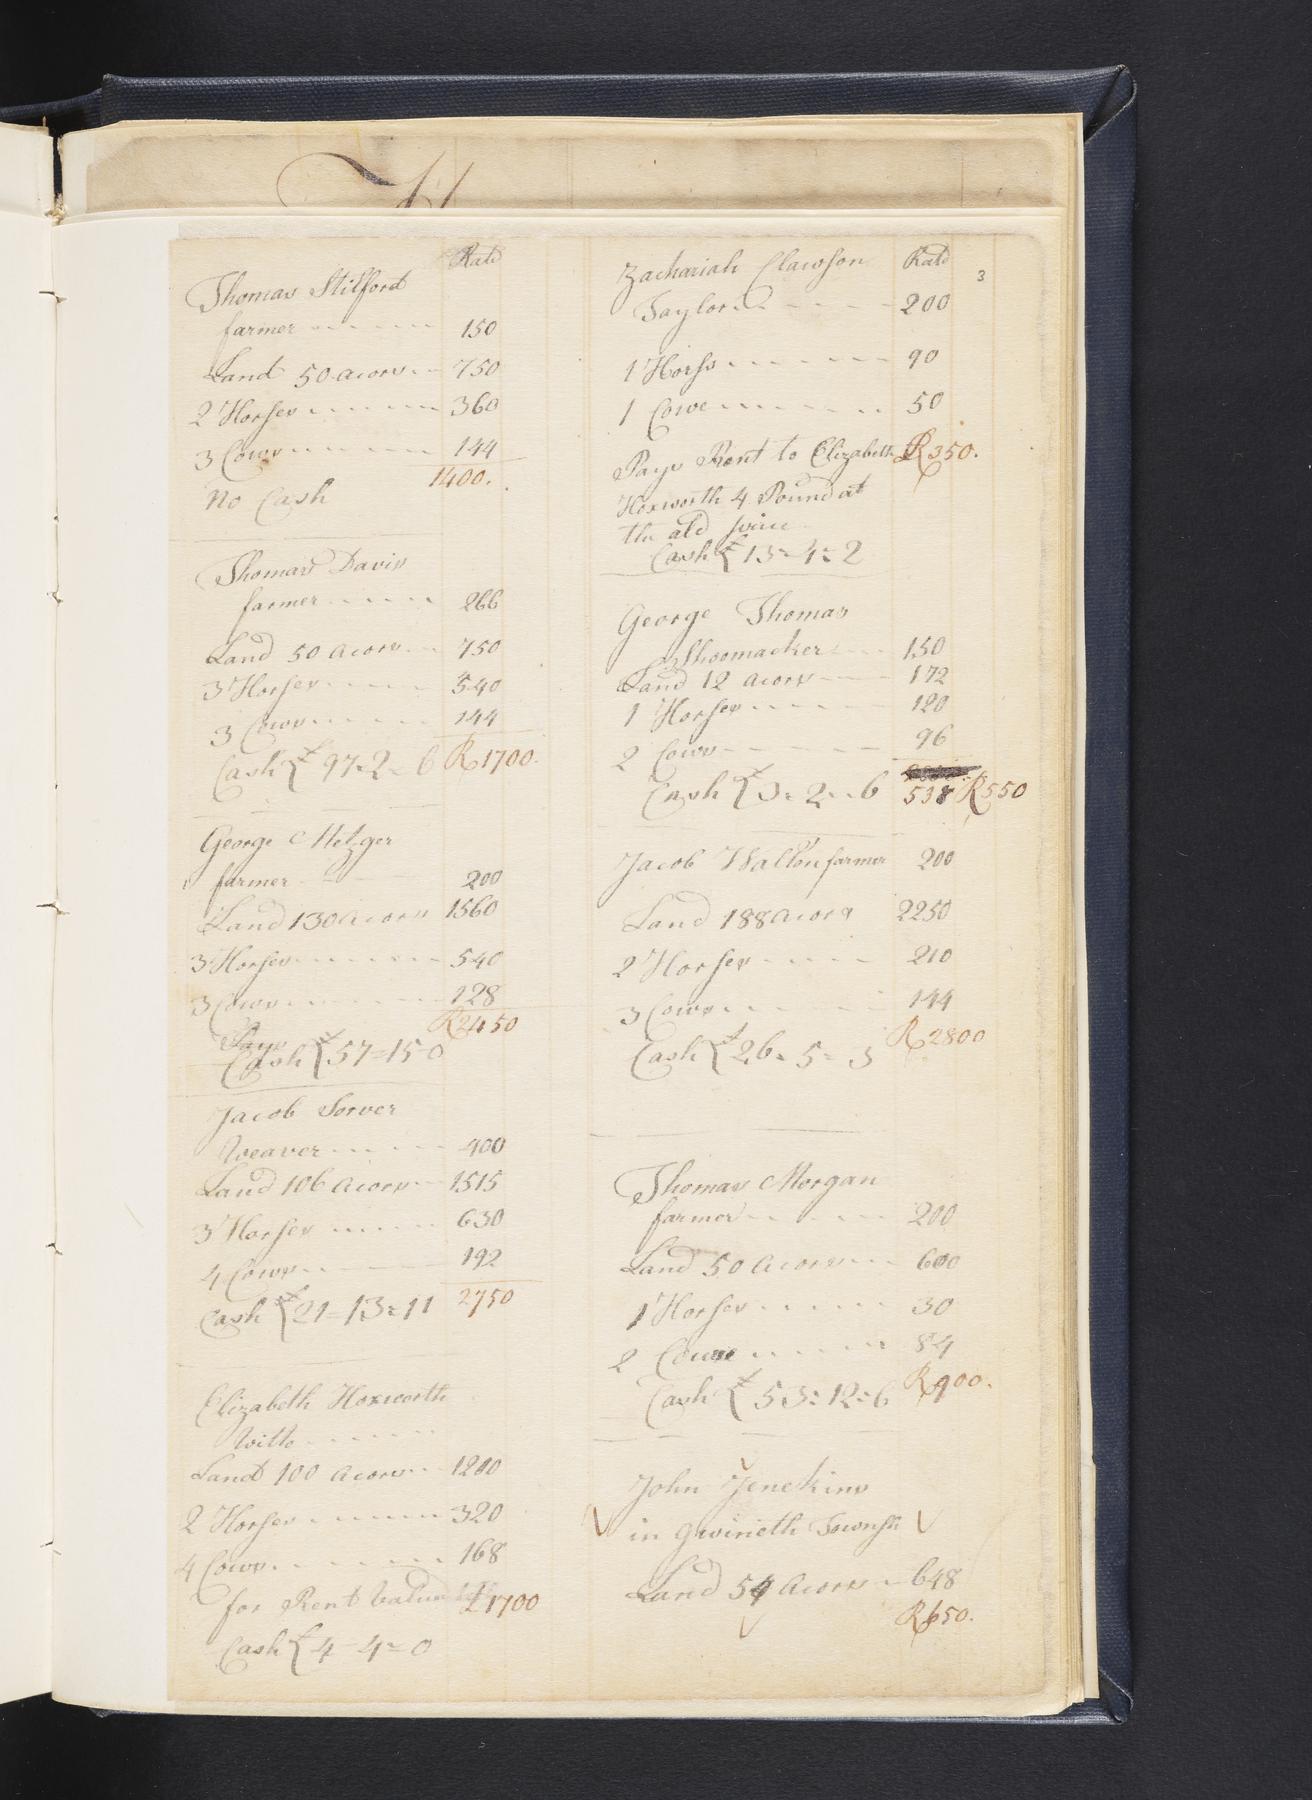 Rate
Thomas Stilford
farmer 150
Land 50 acors 750
2 Horses 360
3 Cows 144
1400.
No Cash
Thomas Davis
farmer 266
Land 50 acors 750
3 Horses 540
3 Cows 144
Cash £ 97=2=6 R1700.
George Metzger
farmer 200
Land 130 acors 1560
3 Horses 540
3 Cows 128
Pays R2450
Cash £57=15=0
Jacob Sorver
Weaver 400
Land 106 acors 1515
3 Horses 630
4 Cows 192
Cash £21=13=11 2750
Elizabeth Hoxworth
Land 100 acors 1200
2 Horses 320
4 Cows 168
for Rent Value £1700
Cash £4=4=0
Zachariah Clawson Rate
3
Taylor 200
1 Horss 90
1 Cowe 50
Pays Rent to Elizabeth R350.
Hoxworth 4 Pound at
the
Cash £13=4=2
George Thomas
Shoomacker 150
Land 12 acors 172
1 Horses 120
2 Cows 96
Cash £3=2=6 538 R550
Jacob Walton farmer 200
Land 188 acors 2250
2 Horses 210
3 Cows 144
R2800
Cash £26=5=3
Thomas Morgan
farmer 200
Land 50 acors 600
1 Horses 30
2 Cowe 84
Cash £53=12=6 R900.
John Jenckins
in Gwineth Townsh
Land 54 acors 648
R650.